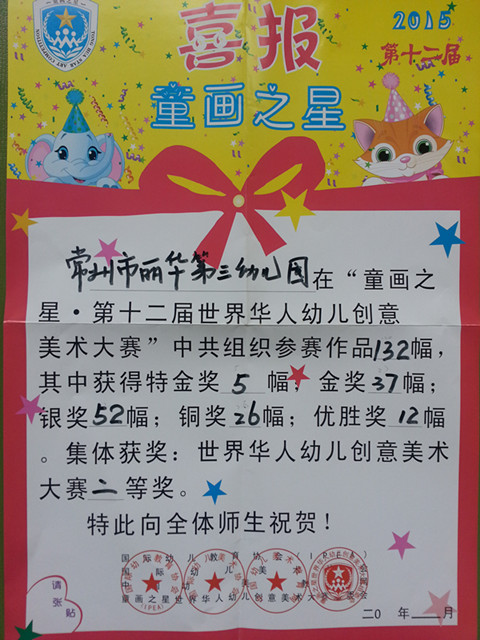 喜报
2015
第十二届
童画之星
常州市丽华第三幼儿园在“童画之
星·第十二届世界华人幼儿创意
美术大赛”中共组织参赛作品132幅，
其中获得特金奖5幅；金奖37幅；
银奖52幅；铜奖26幅；优胜奖12幅
。集体获奖：世界华人幼儿创意美术
大赛二等奖。
特此向全体师生祝贺！
国际幼儿教育协会(IPEA)
童画之星世界华人幼儿创意美术大赛
请张贴
二0 年 月